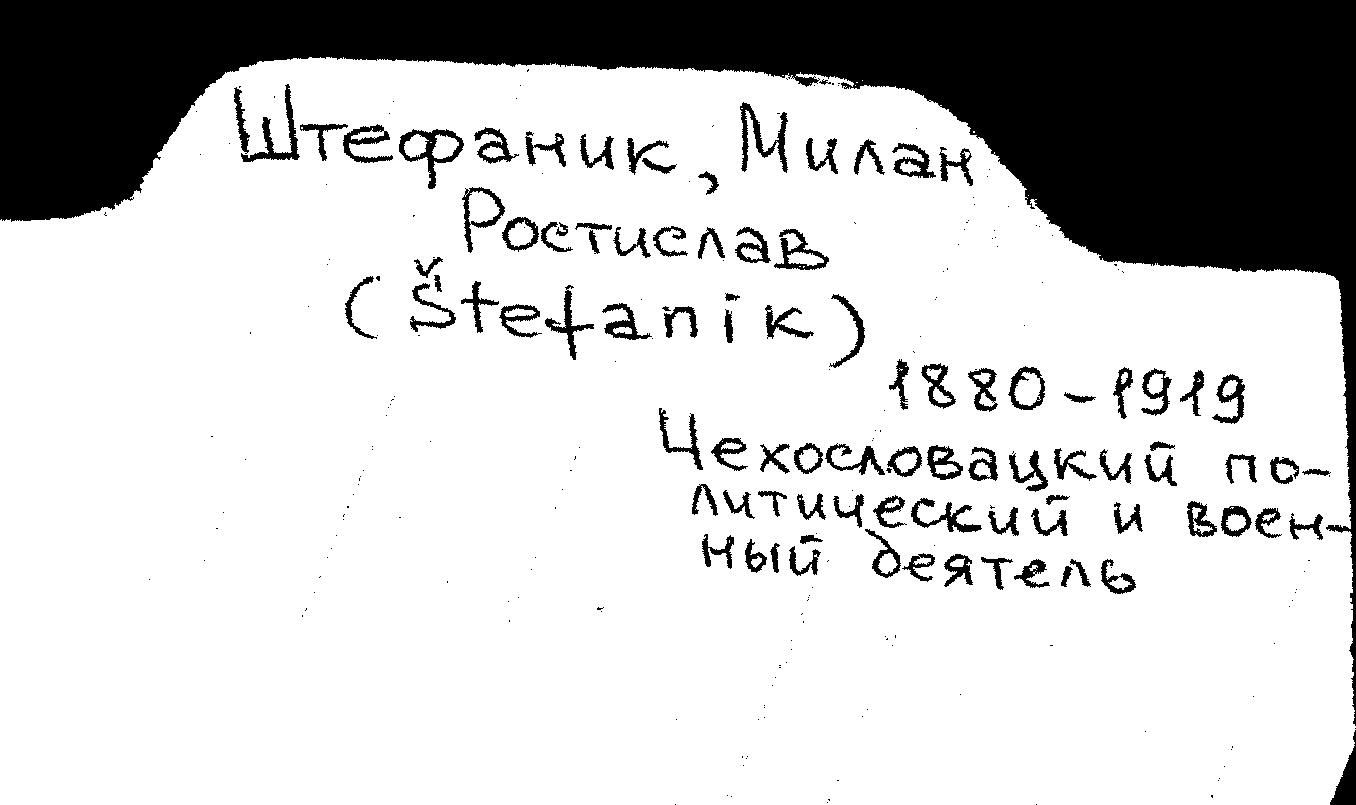 Штефаник, Милан
Ростислав
(Štefanik)
1880-1919
Чехословацкий по-
литический и воен-
ный деятель